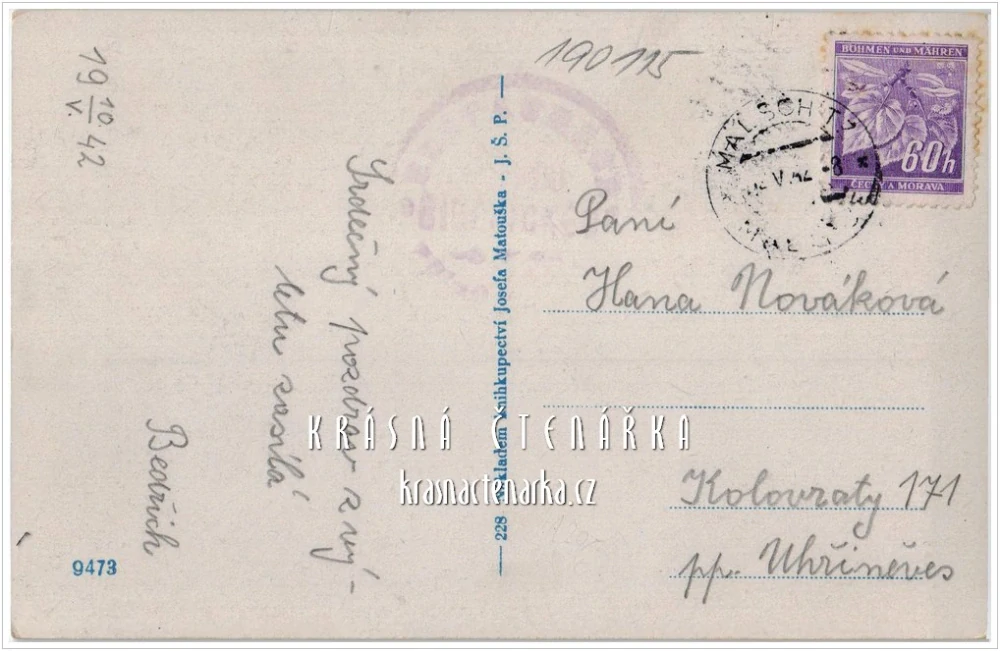 190115
BÖHMEN UND MÄHREN
60h
ČECHY A MORAVA
MALSCHITZ
V.42-8
19 10/V. 42
Srdečný pozdrav z vý-
letu zasílá
Bedřich
9473
228 Nákladem knihkupectví Josefa Matouška - J. Š. P.
Paní
Hana Nováková
Kolovraty 171
pp. Uhříněves
KRÁSNÁ ČTENÁŘKA
krasnactenarka.cz